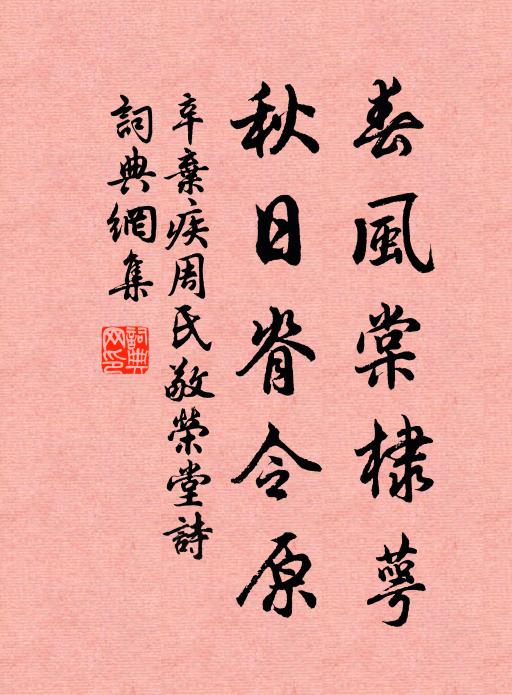 春風棠棣萼
秋日脊令原
辛棄疾周氏敬榮堂詩
詞典網集
詞典
网印